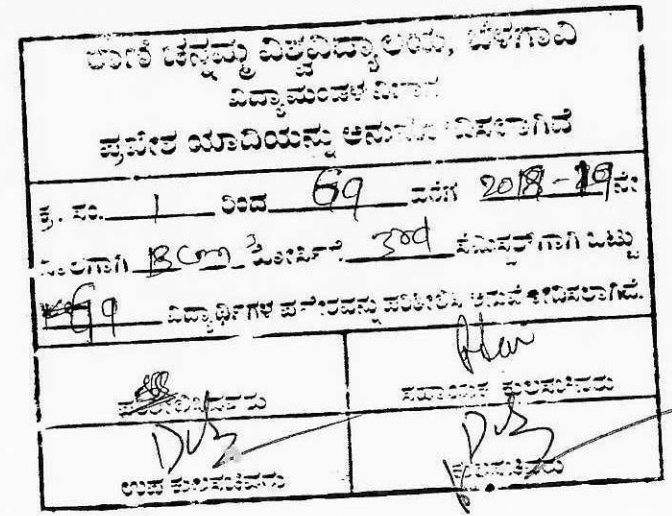 ರಾಣಿ ಚನ್ನಮ್ಮ ವಿಶ್ವವಿದ್ಯಾಲಯ, ಬೆಳಗಾವಿ
ವಿದ್ಯಾಮಂಡಳ ವಿಭಾಗ
ಪ್ರವೇಶ ಯಾದಿಯನ್ನು ಅನುಮೋದಿಸಲಾಗಿದೆ
ಕ್ರ. ಸಂ. 1 ರಿಂದ 69 ವರೆಗೆ 2018-19 ನೇ
ಸಾಲಿಗಾಗಿ BCom ಕೋರ್ಸಿನ 3rd ಸೆಮಿಸ್ಟರ್ ಗಾಗಿ ಒಟ್ಟು
69 ವಿದ್ಯಾರ್ಥಿಗಳ ಪ್ರವೇಶವನ್ನು ಪರಿಶೀಲಿಸಿ ಅನುಮೋದಿಸಲಾಗಿದೆ.
ಸಹಾಯಕ ಕುಲಸಚಿವರು
ಉಪ ಕುಲಸಚಿವರು ಕುಲಸಚಿವರು